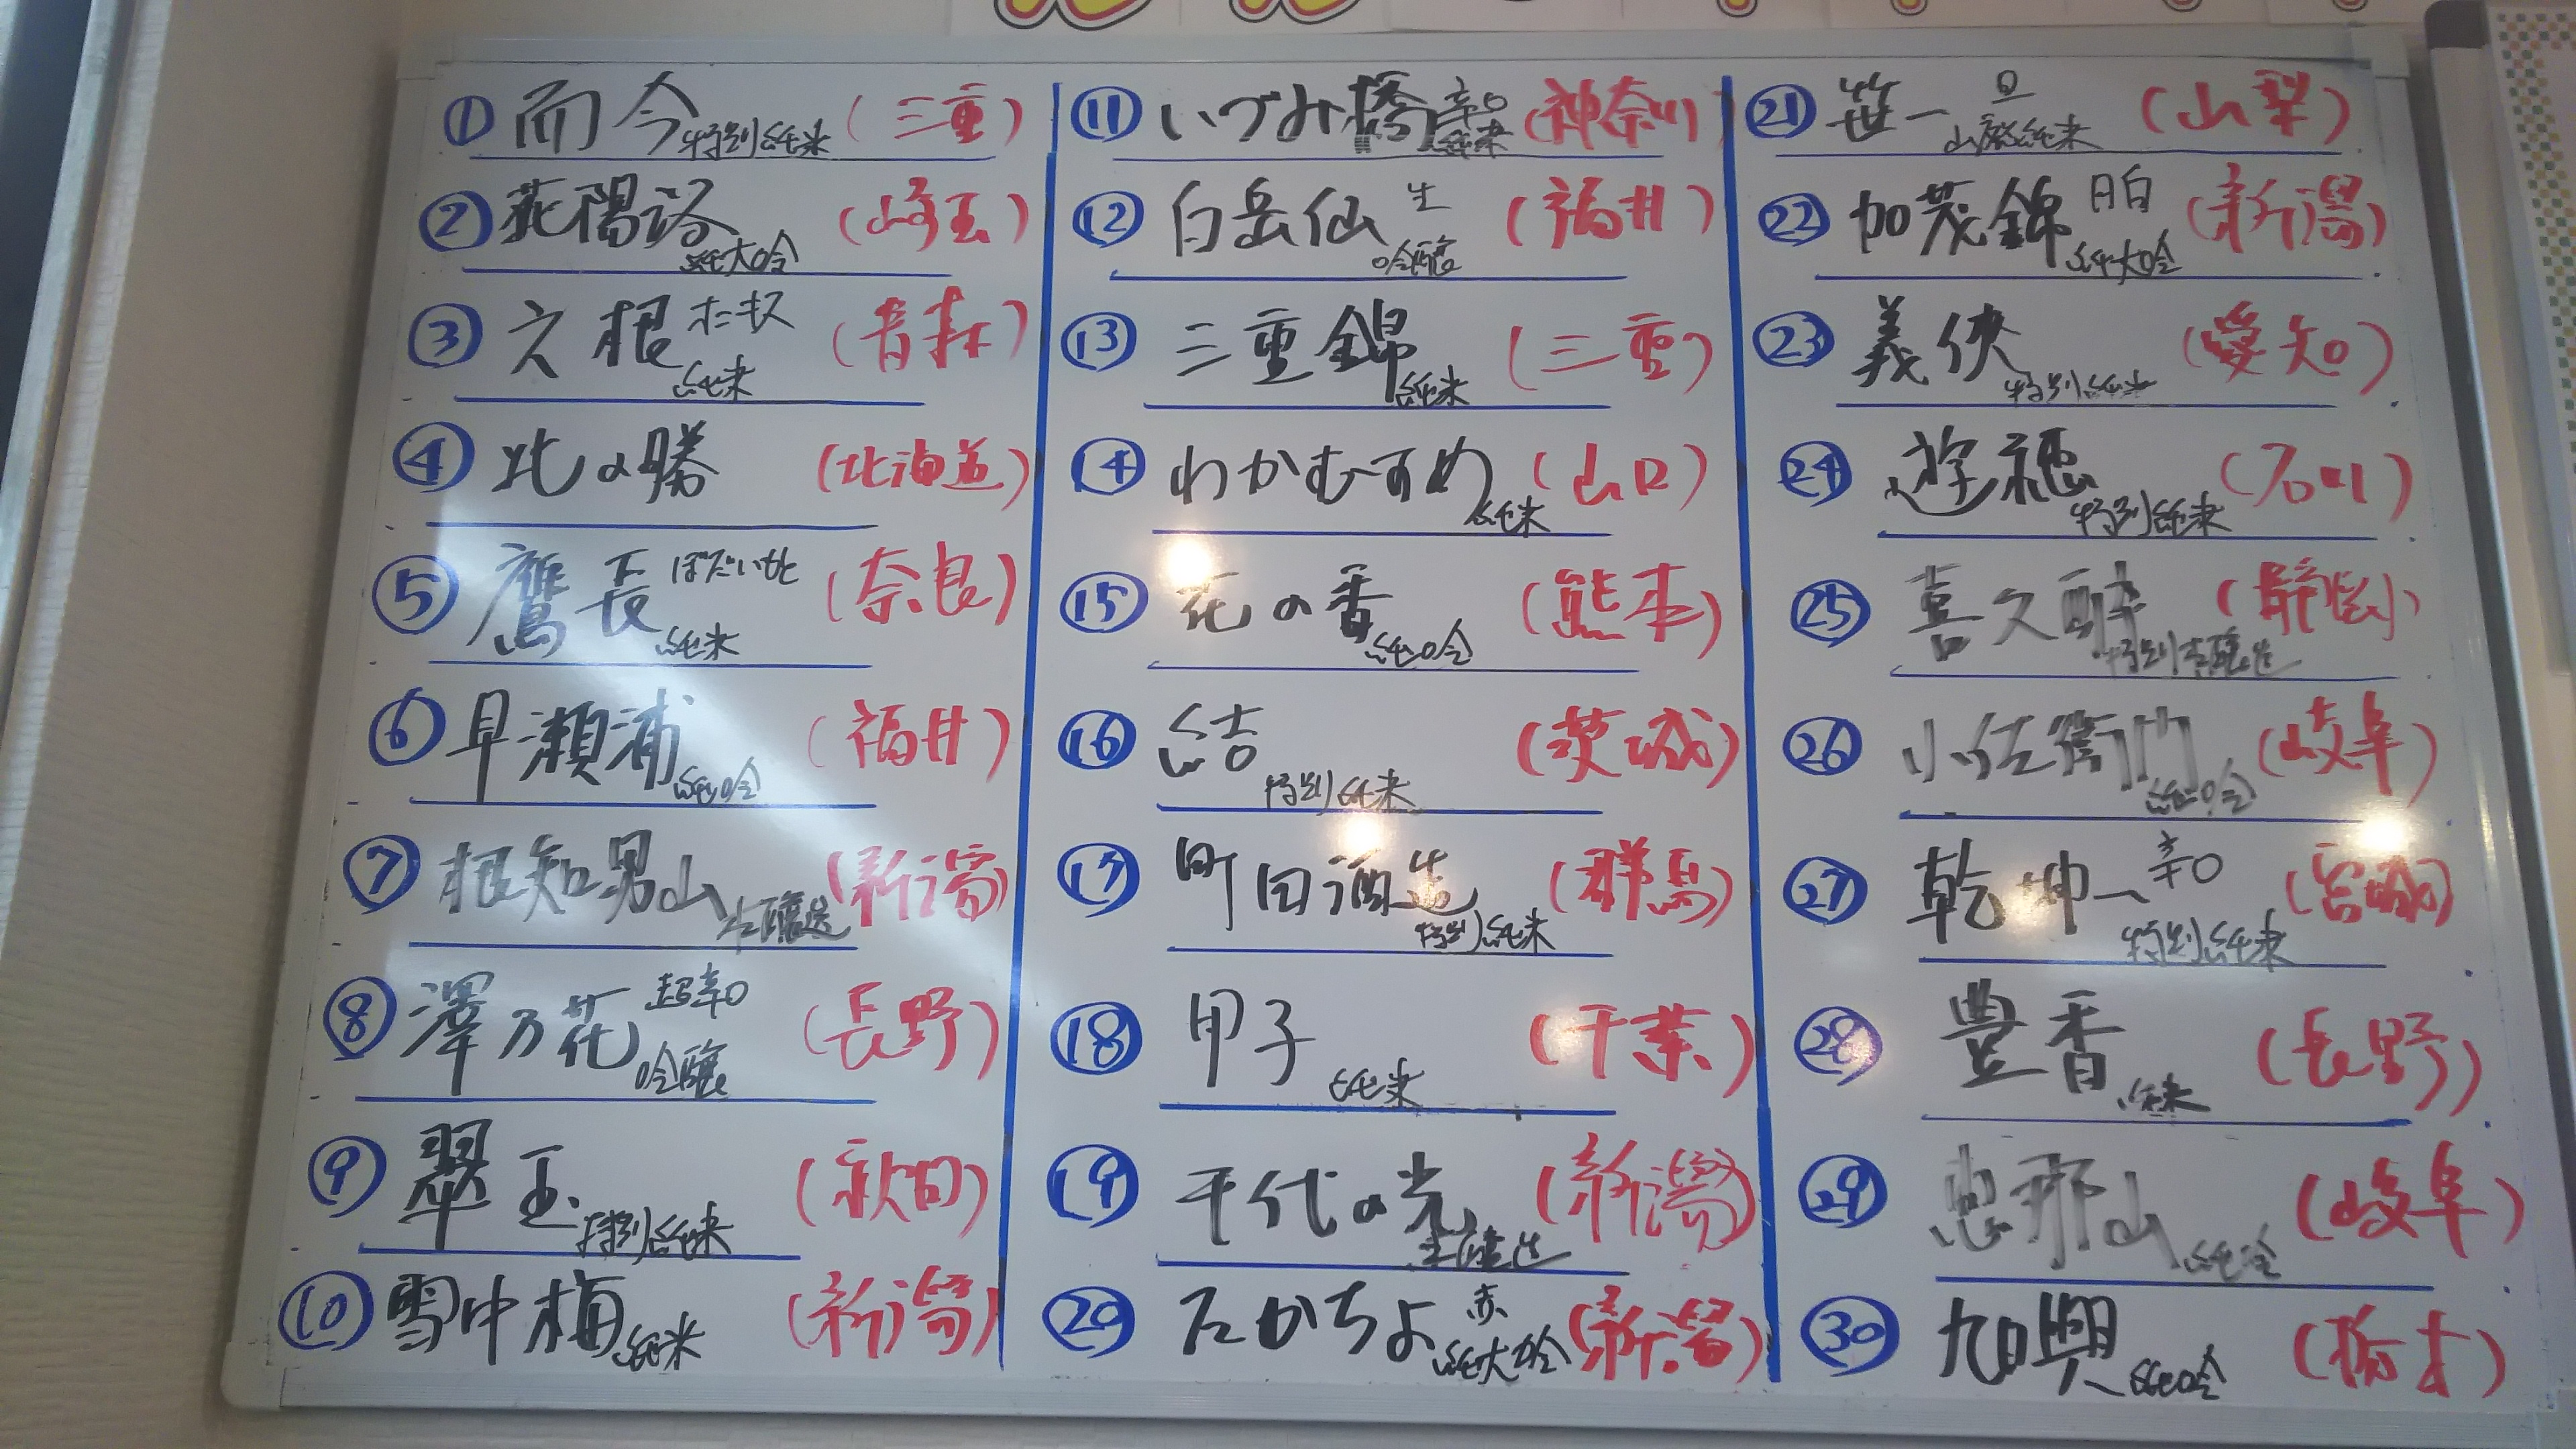 ① 而今 特別純米 (三重)
② 花陽浴 純大吟 (埼玉)
③ 六根 純米 (青森)
④ 北の勝 (北海道)
⑤ 鷹長 ぼだいもと 純米 (奈良)
⑥ 早瀬浦 純吟 (福井)
⑦ 根知男山 本醸造 (新潟)
⑧ 澤乃花 超辛口 吟醸 (長野)
⑨ 翠玉 特別純米 (秋田)
⑩ 雪中梅 純米 (新潟)
⑪ いづみ橋 辛口 純米 (神奈川)
⑫ 白岳仙 生 吟醸 (福井)
⑬ 三重錦 純米 (三重)
⑭ わかむすめ 純米 (山口)
⑮ 花の香 純吟 (熊本)
⑯ 結 特別純米 (茨城)
⑰ 町田酒造 特別純米 (群馬)
⑱ 甲子 純米 (千葉)
⑲ 千代の光 本醸造 (新潟)
⑳ たかちよ 赤 純大吟 (新潟)
㉑ 笹一 旦 山廃純米 (山梨)
㉒ 加茂錦 純大吟 (新潟)
㉓ 義侠 特別純米 (愛知)
㉔ 遊穂 特別純米 (石川)
㉕ 喜久酔 特別本醸造 (静岡)
㉖ 小左衛門 純吟 (岐阜)
㉗ 乾坤一 辛口 特別純米 (宮城)
㉘ 豊香 純米 (長野)
㉙ 恵那山 純吟 (岐阜)
㉚ 旭興 純吟 (栃木)